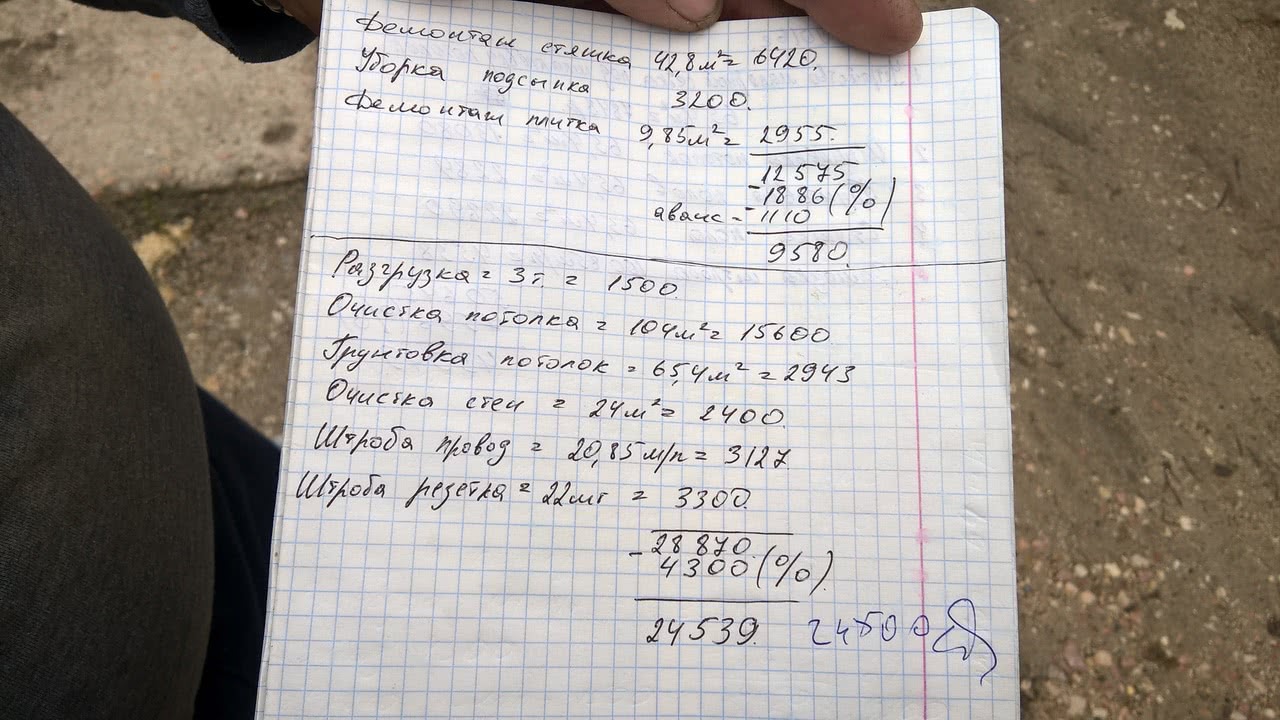 Демонтаж стяшка 42,8м²= 6420.
Уборка подсыпка 3200.
Демонтаж плитка 9,85м²= 2955.
12575
-1886(%)
аванс -1110
9580.
Разгрузка = 3т. = 1500.
Очистка потолка = 104м²= 15600
Грунтовка потолок = 65,4м² = 2943
Очистка стен = 24м²= 2400.
Штроба провод = 20,85м/п = 3127.
Штроба резетка = 22шт = 3300.
28870.
-4300(%).
24539. 24500